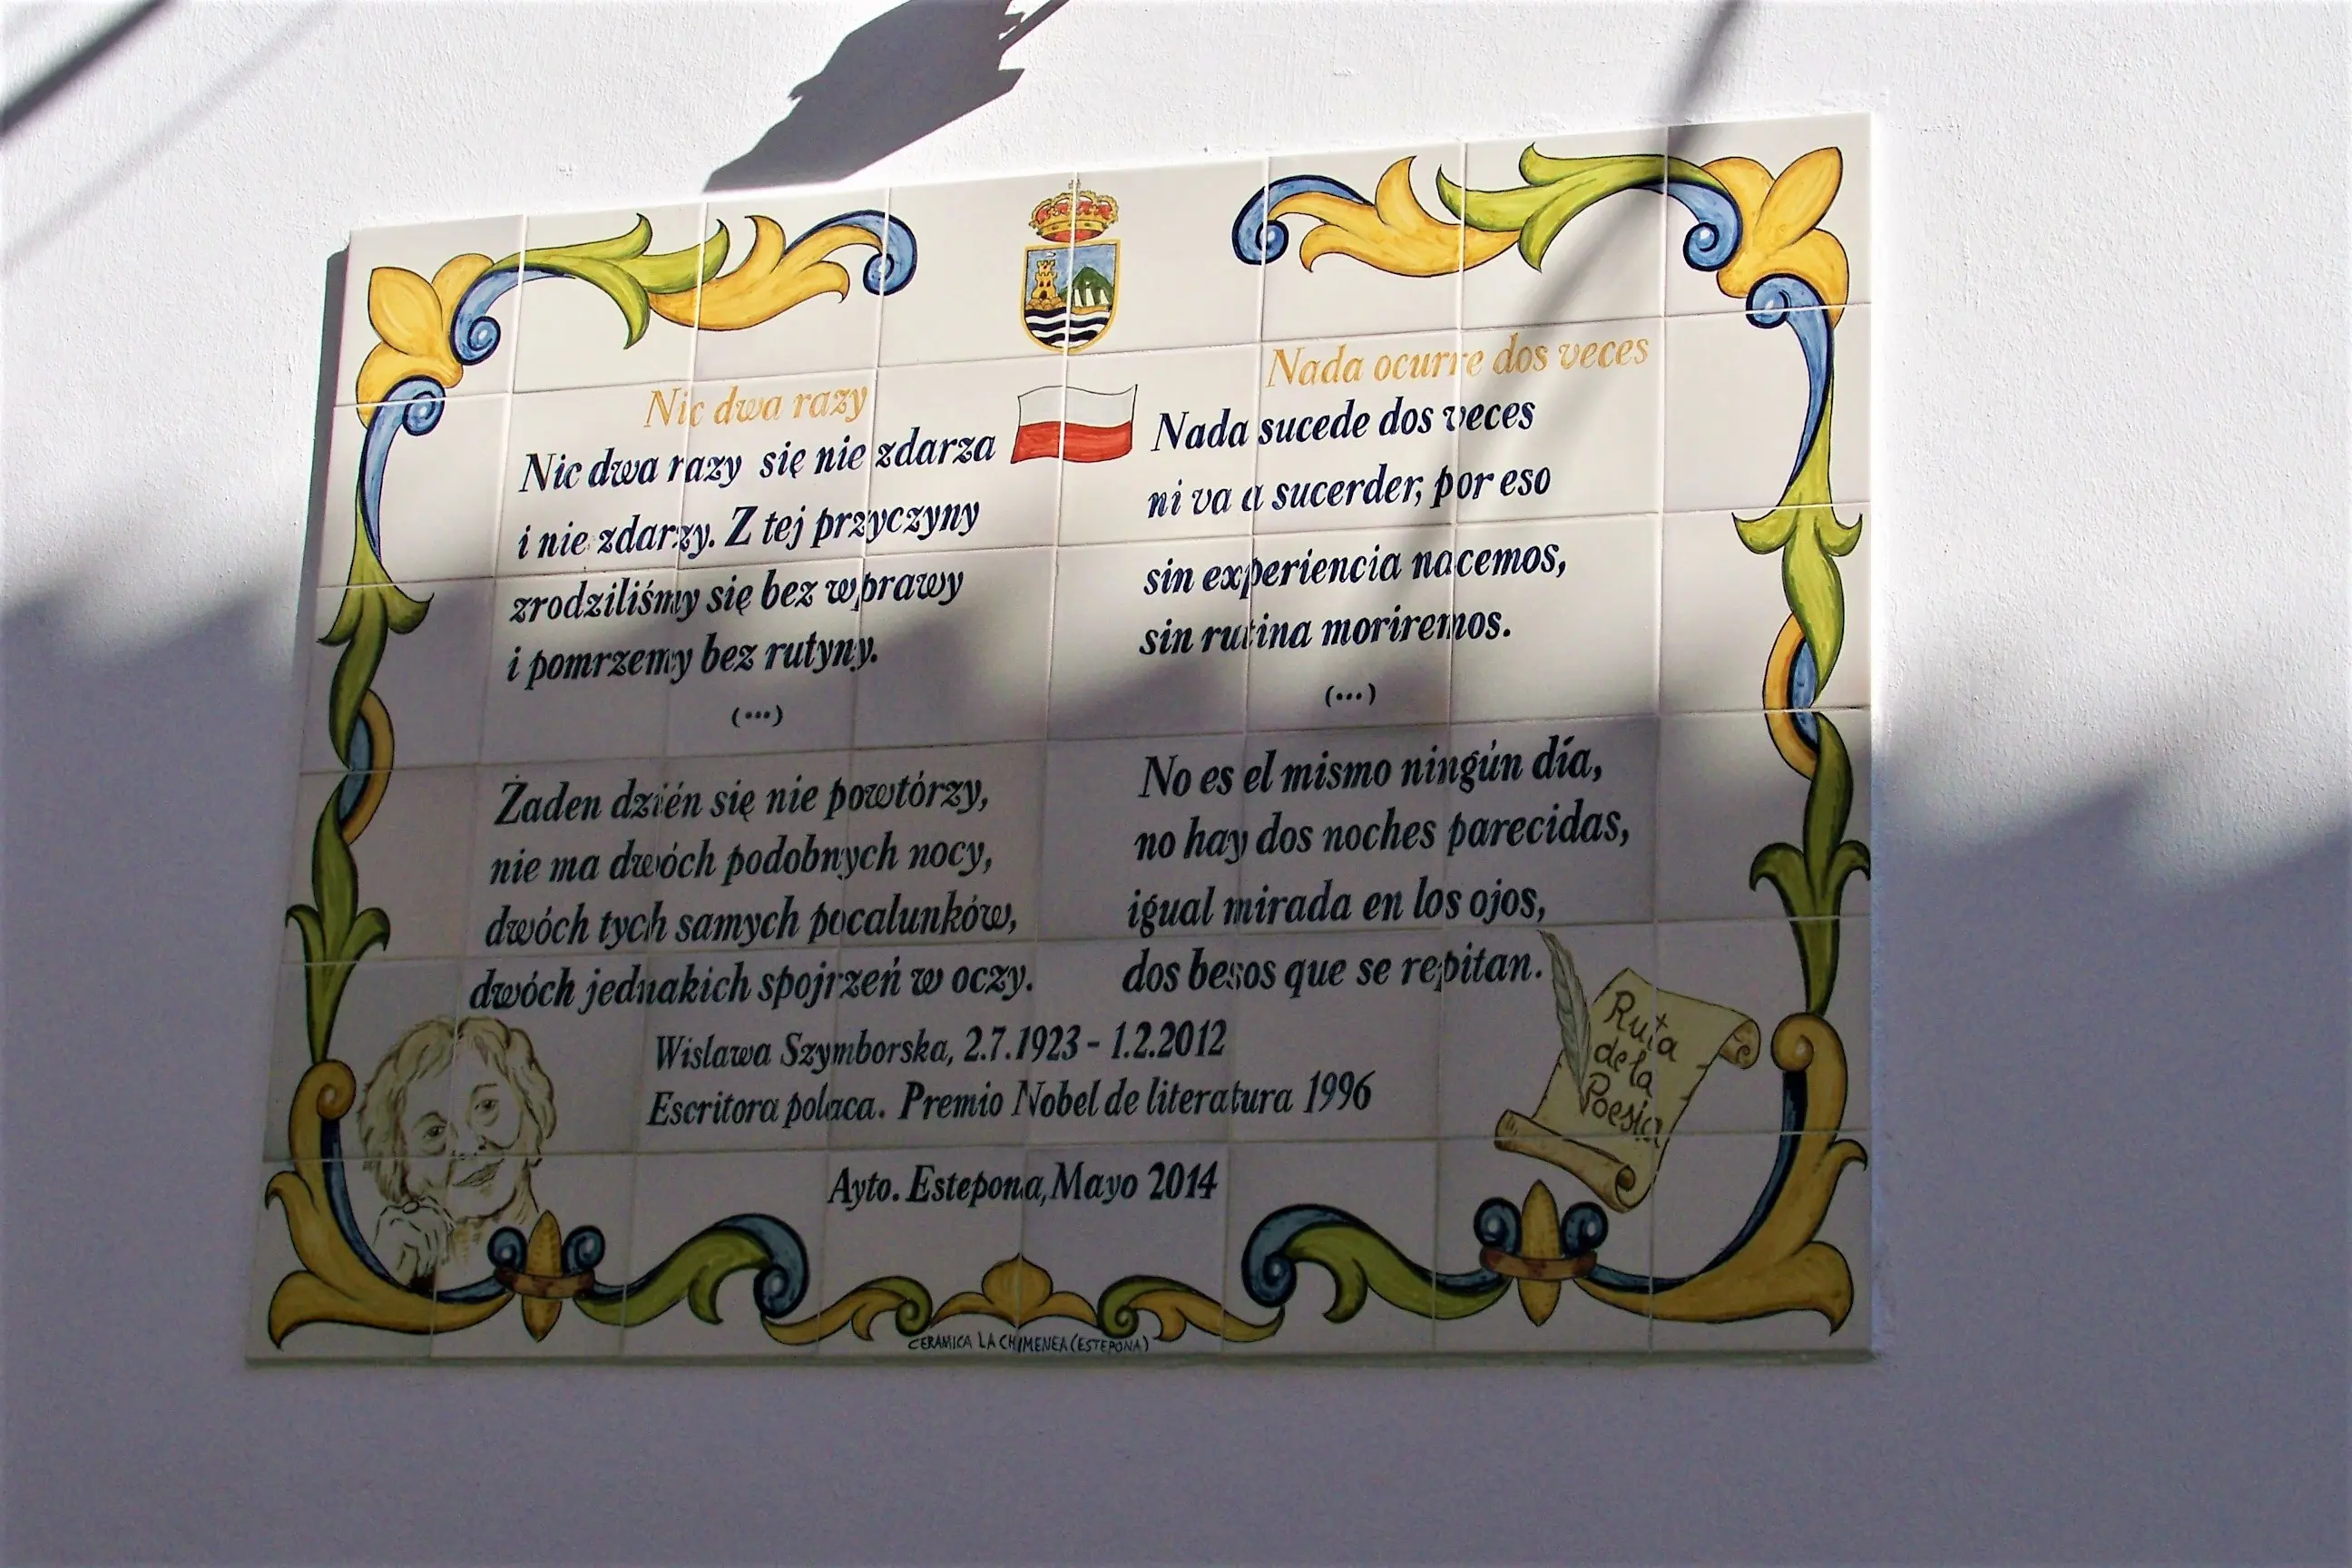 Nic dwa razy
Nic dwa razy się nie zdarza
i nie zdarzy. Z tej przyczyny
zrodziliśmy się bez wprawy
i pomrzemy bez rutyny.
(...)
Żaden dzién się nie powtórzy,
nie ma dwóch podobnych nocy,
dwóch tych samych pocalunków,
dwóch jednakich spojrzeń w oczy.
Nada ocurre dos veces
Nada sucede dos veces
ni va a sucerder, por eso
sin experiencia nacemos,
sin rutina moriremos.
(...)
No es el mismo ningún día,
no hay dos noches parecidas,
igual mirada en los ojos,
dos besos que se repitan.
Wislawa Szymborska, 2.7.1923 - 1.2.2012
Escritora polaca. Premio Nobel de literatura 1996
Ayto. Estepona, Mayo 2014
Ruta
de la
Poesía
CERAMICA LA CHIMENEA (ESTEPONA)